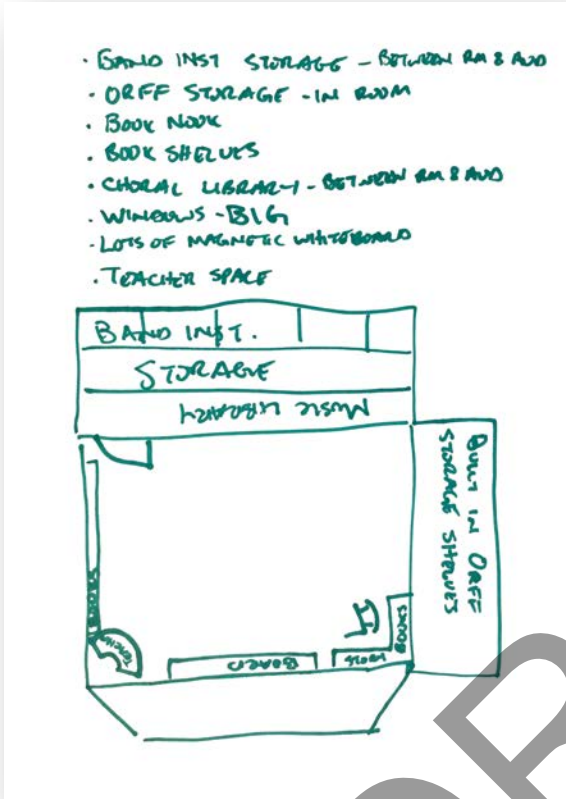 · BAND INST STORAGE - BETWEEN RM & AUD
· ORFF STORAGE - IN ROOM
· BOOK NOOK
· BOOK SHELVES
· CHORAL LIBRARY - BETWEEN RM & AUD
· WINDOWS - BIG
· LOTS OF MAGNETIC WHITEBOARD
· TEACHER SPACE
BAND INST.
STORAGE
MUSIC LIBRARY
BUILT IN ORFF
STORAGE SHELVES
BOOKS
TEACHER
BOARD